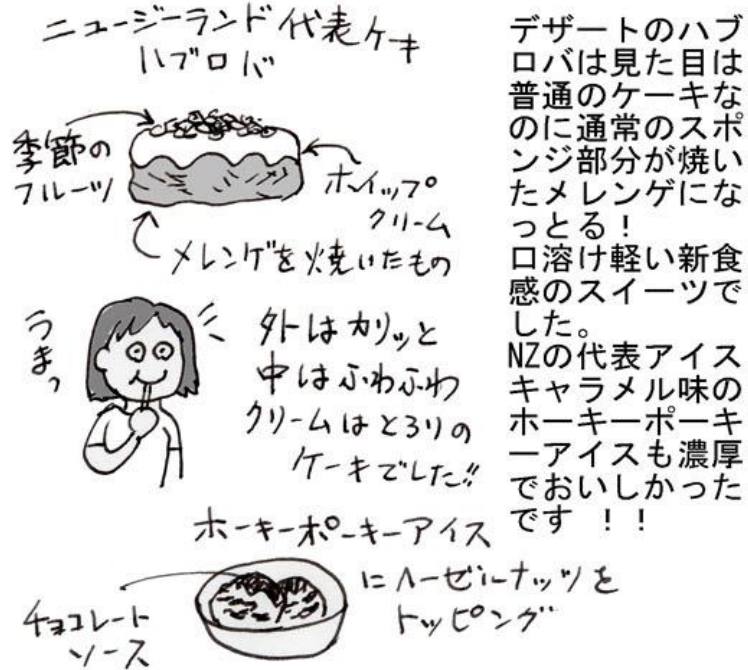 ニュージーランド代表ケーキ
ハブロバ
季節の
フルーツ
ホイップ
クリーム
メレンゲを焼いたもの
うまっ
外はカリッと
中はふわふわ
クリームはとろりの
ケーキでした!!
ホーキーポーキーアイス
にヘーゼルナッツを
トッピング
チョコレート
ソース
デザートのハブ
ロバは見た目は
普通のケーキな
のに通常のスポ
ンジ部分が焼い
たメレンゲにな
っとる！
口溶け軽い新食
感のスイーツで
した。
NZの代表アイス
キャラメル味の
ホーキーポーキ
ーアイスも濃厚
でおいしかった
です ！！